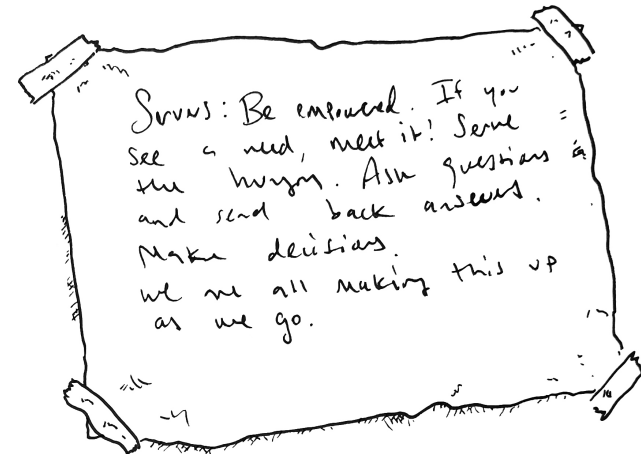 Servers: Be empowered. If you
see a need, meet it! Serve
the hungry. Ask questions
and send back answers.
Make decisions.
We are all making this up
as we go.